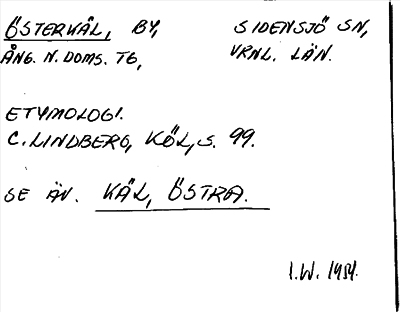 ÖSTERKÅL, BY, SIDENSJÖ SN,
ÅNG. N. DOMS. TG, VRNL. LÄN.
ETYMOLOGI.
C. LINDBERG, KÖL, S. 99.
SE ÄV. KÅL, ÖSTRA.
I.W. 1951.